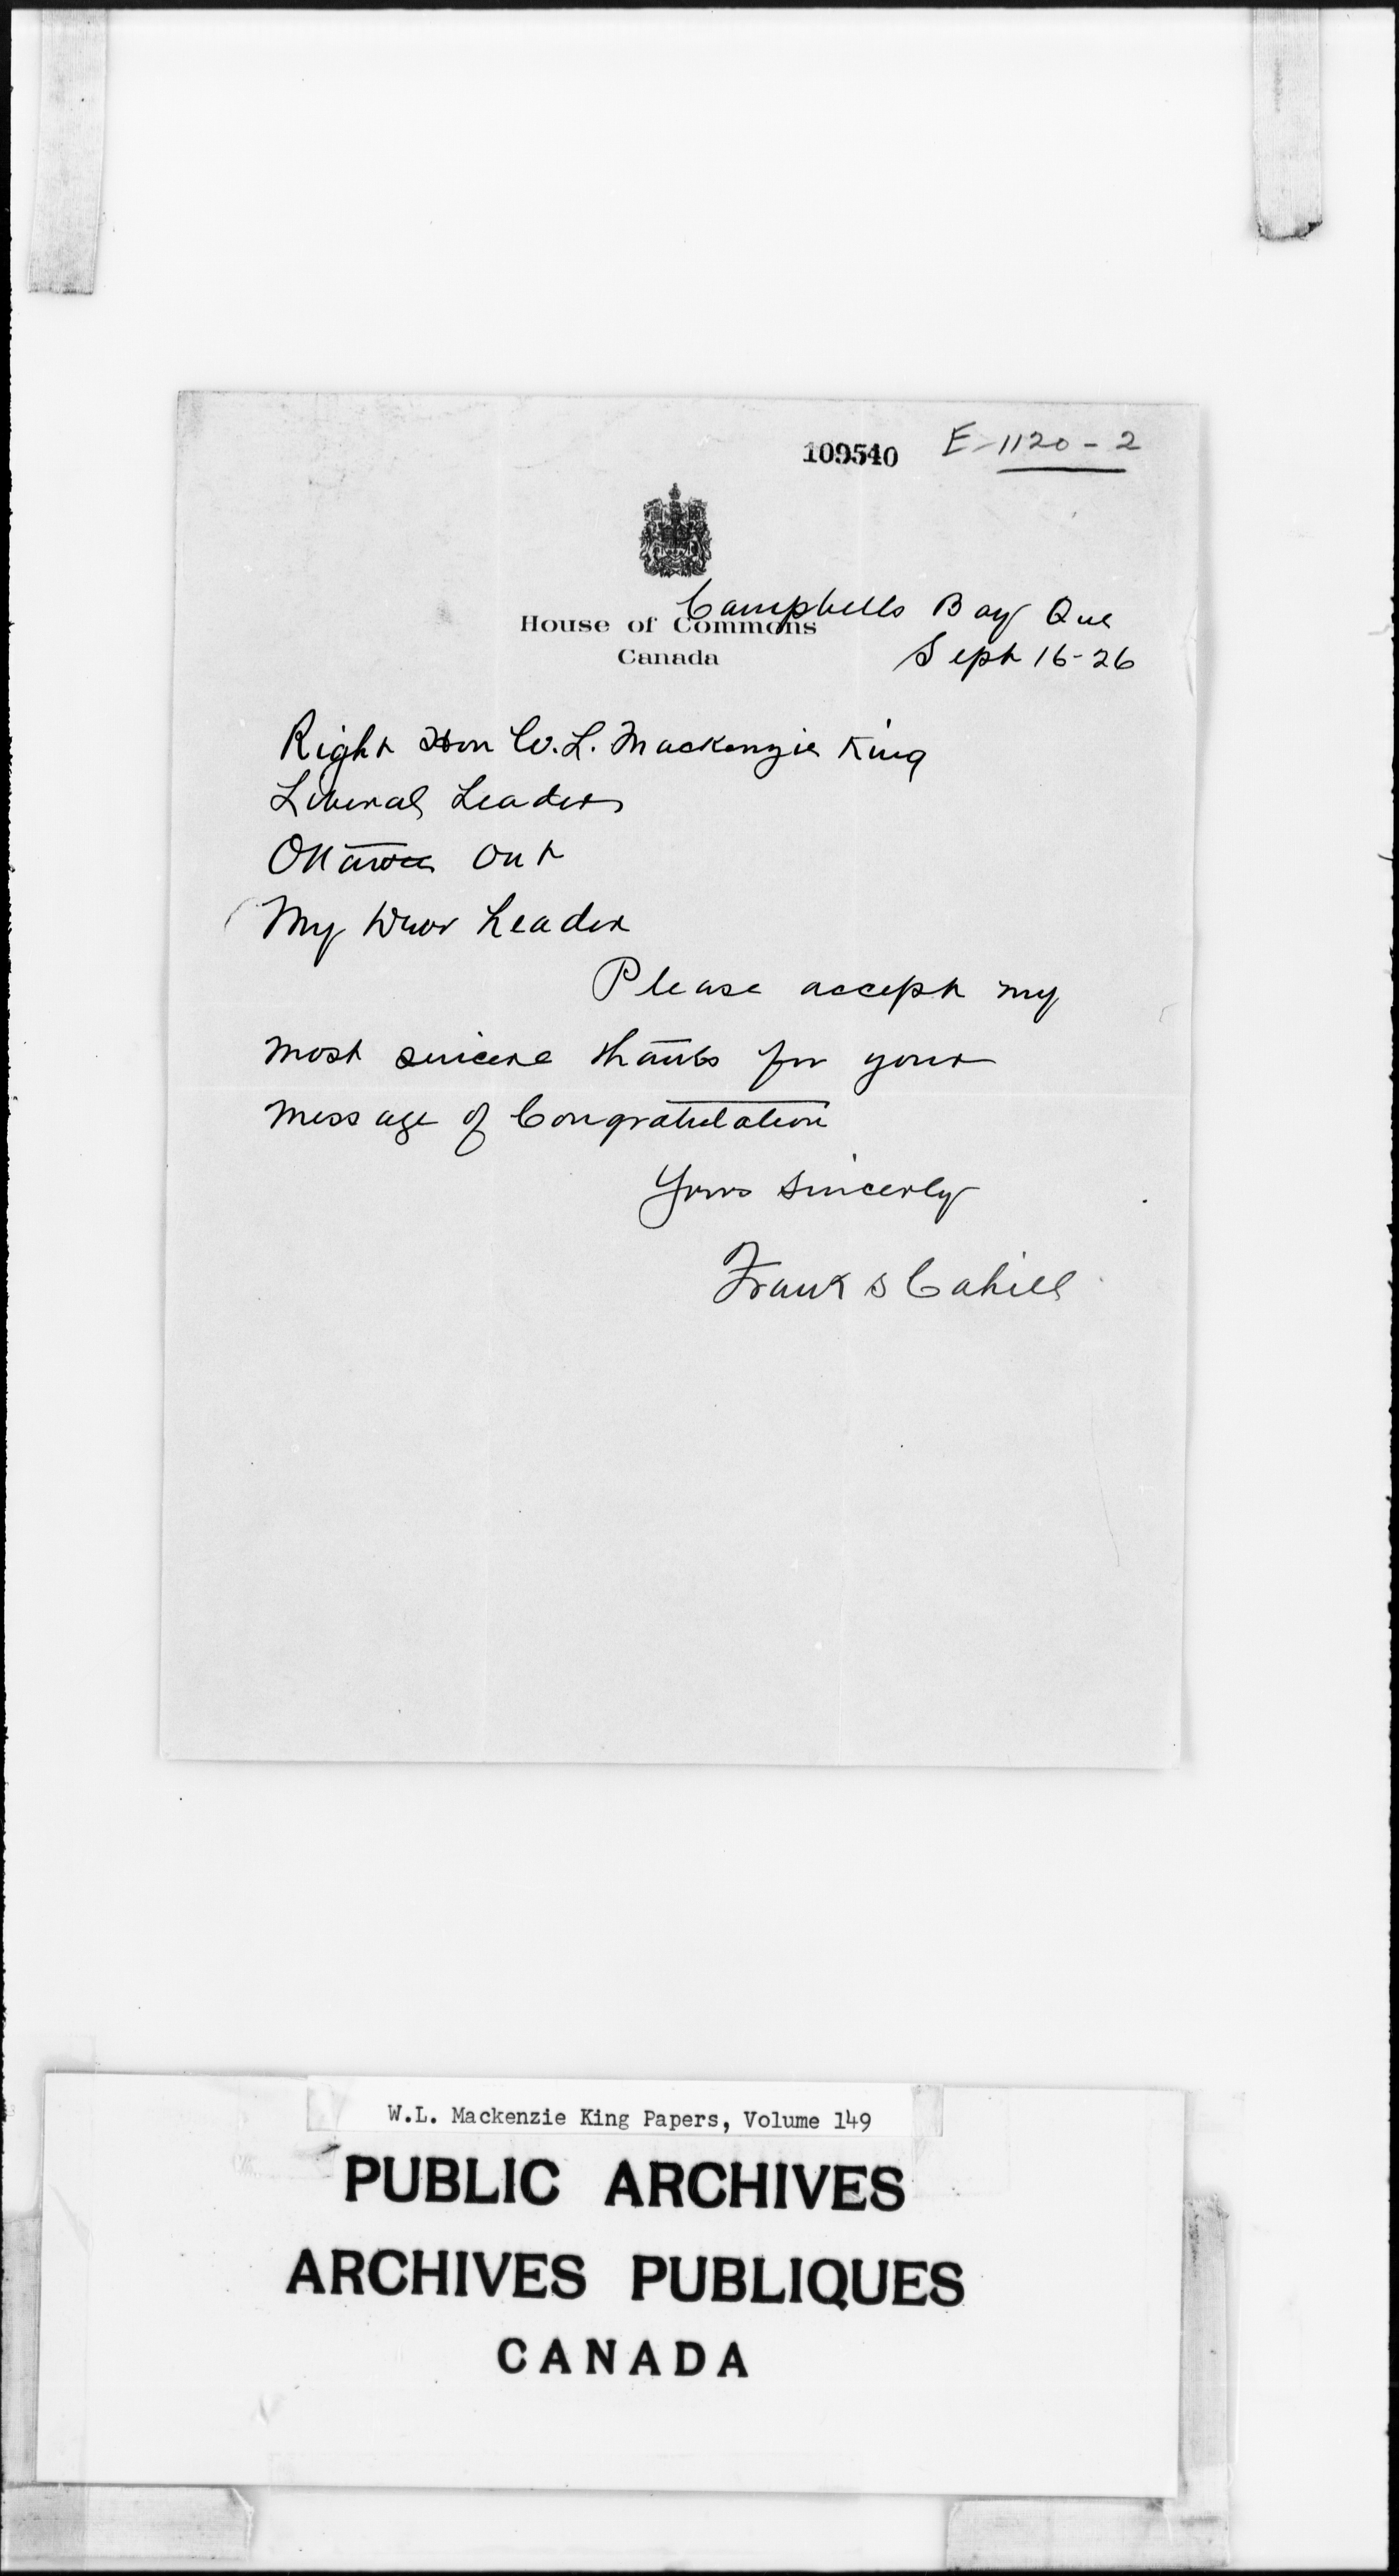 109540 E-1120-2
Campbells Bay Que
House of Commons
Canada
Sept 16-26
Right Hon W.L. Mackenzie King
Liberal Leader
Ottawa Ont
My Dear Leader
Please accept my
most sincere thanks for your
message of Congratulation
Yours sincerly
Frank S Cahill
W.L. Mackenzie King Papers, Volume 149
PUBLIC ARCHIVES
ARCHIVES PUBLIQUES
CANADA